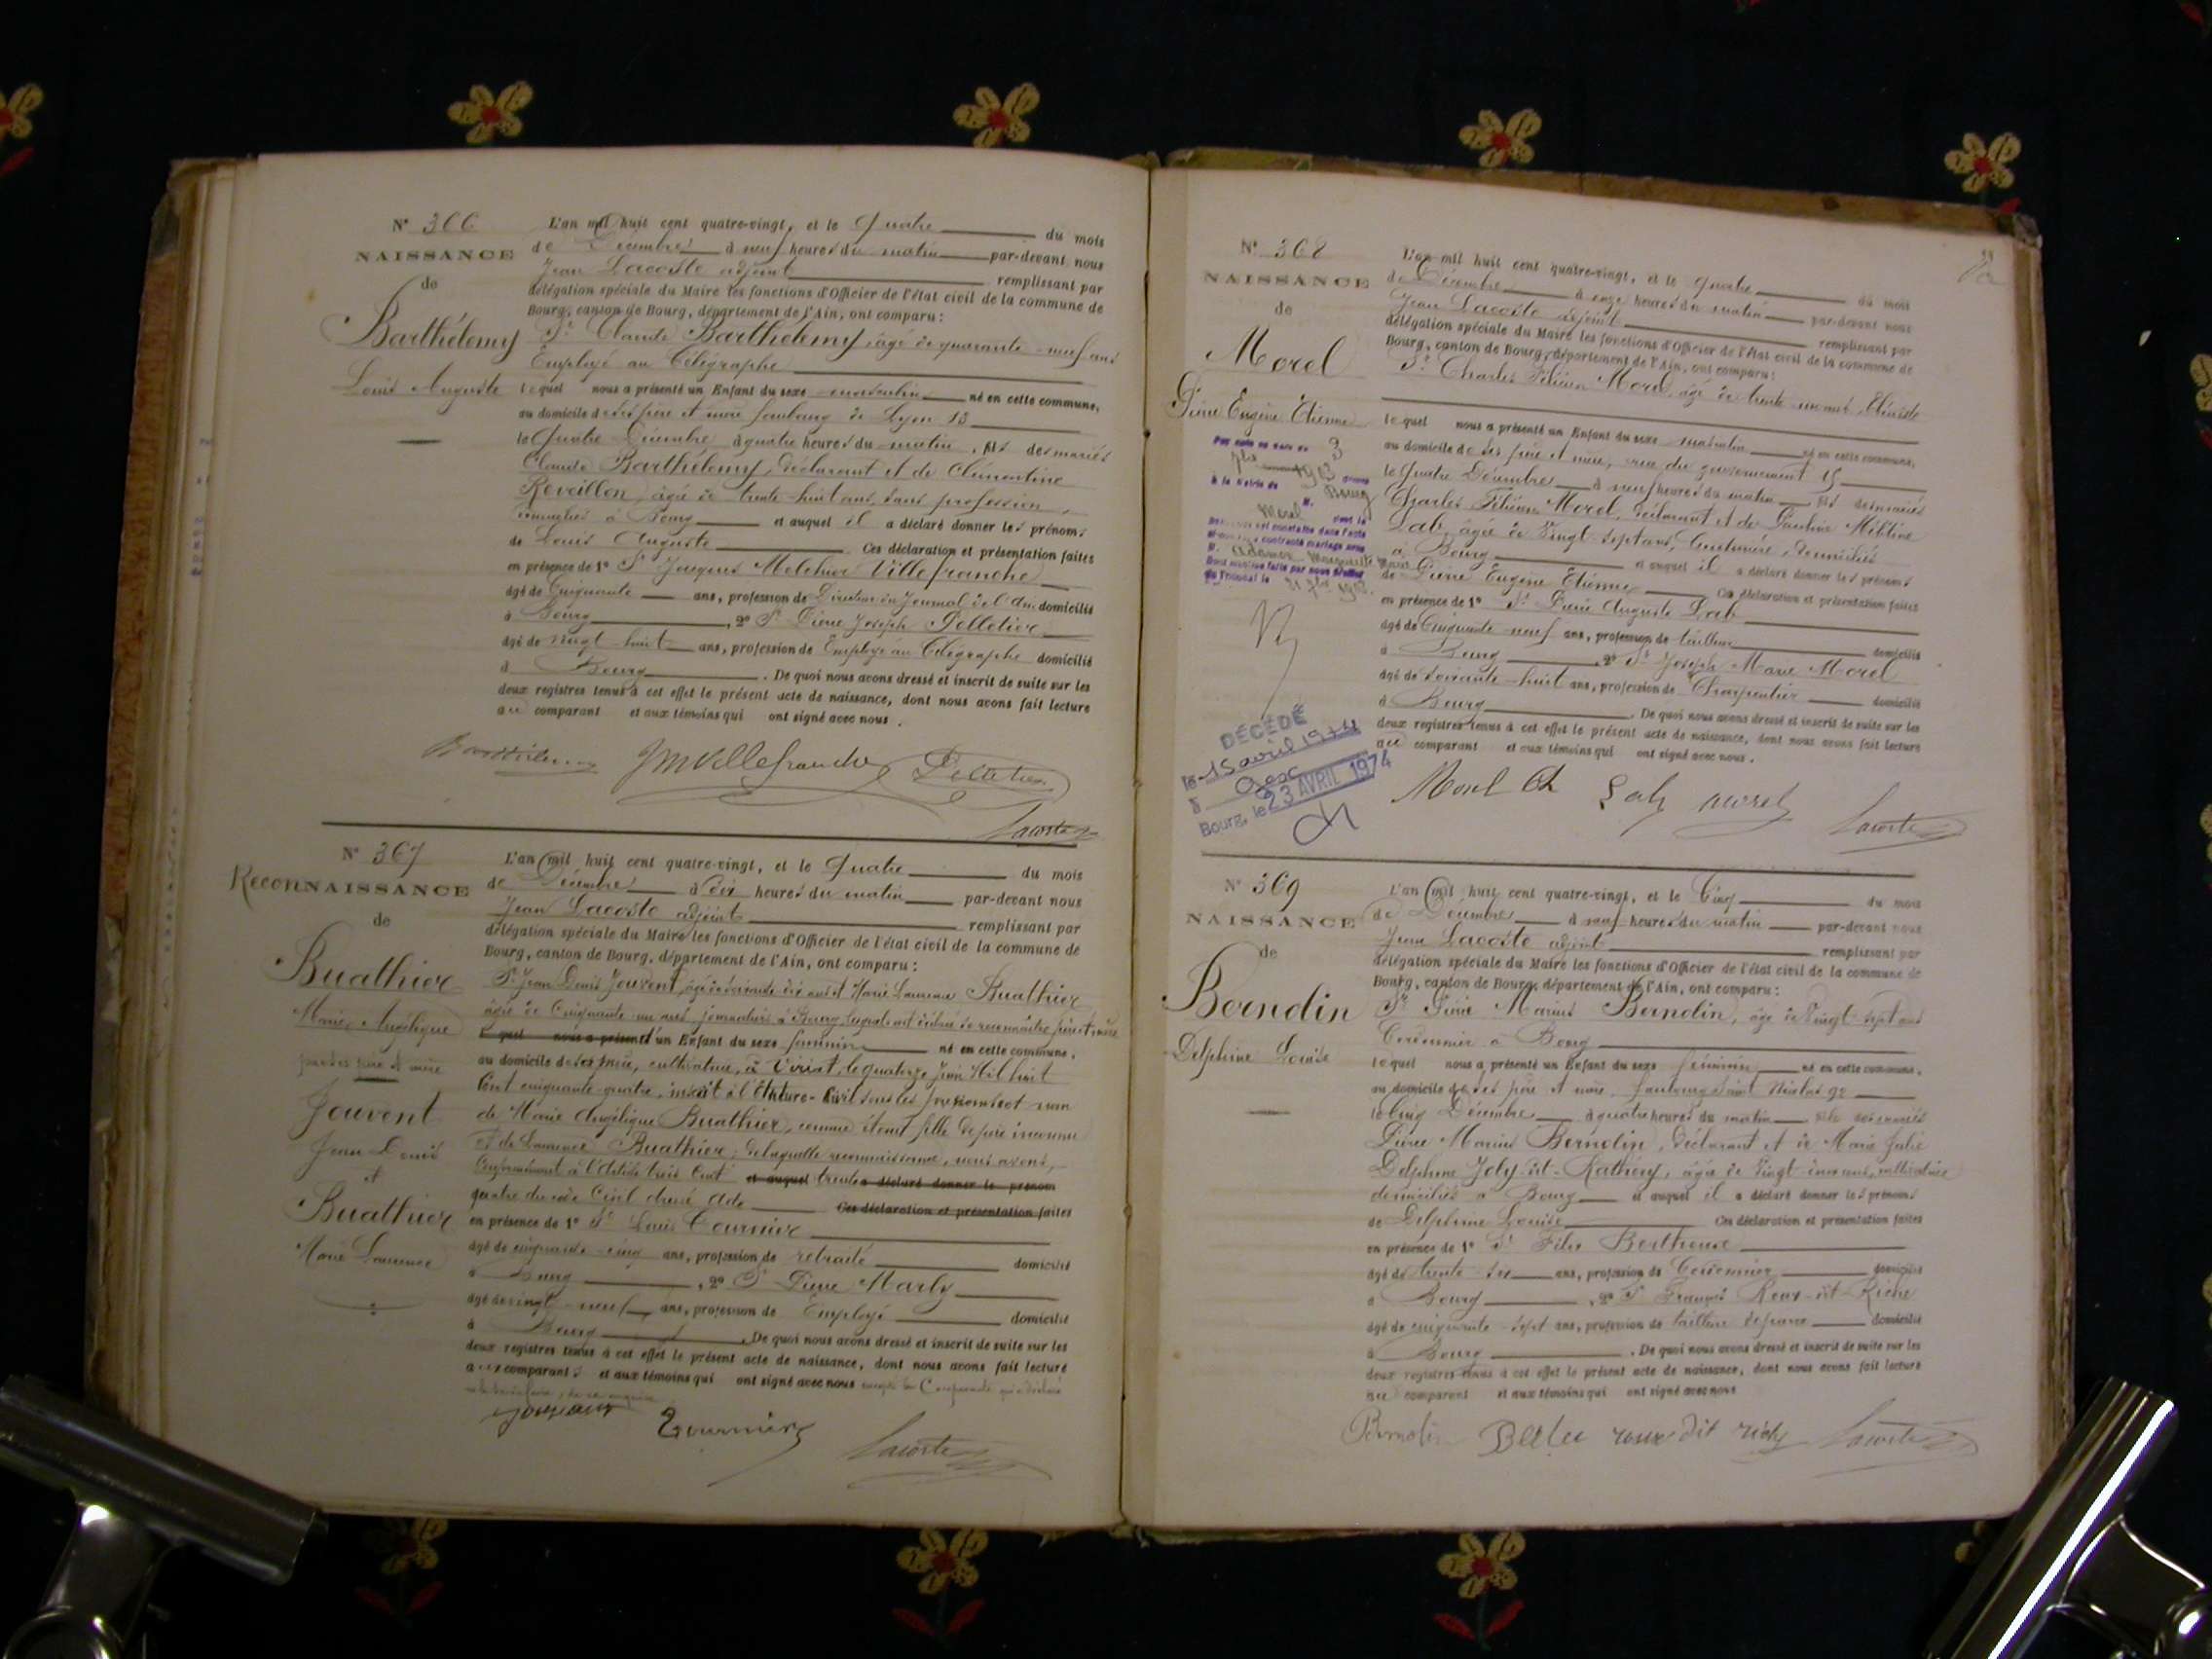 N° 366
NAISSANCE
de
Barthélemy
Louis Auguste
L'an mil huit cent quatre-vingt, et le Quatre du mois
de Décembre à neuf heures du matin par-devant nous
Jean Lacoste adjoint remplissant par
délégation spéciale du Maire les fonctions d'Officier de l'état civil de la commune de
Bourg, canton de Bourg, département de l'Ain, ont comparu :
Sr Claude Barthélemy, âgé de quarante-neuf ans
Employé au Télégraphe
lequel nous a présenté un Enfant du sexe masculin né en cette commune,
au domicile de ses père et mère faubourg de Lyon 13
le Quatre Décembre à quatre heures du matin, fils des mariés
Claude Barthélemy, déclarant et de Clémentine
Reveillon, âgée de trente-huit ans, sans profession,
domiciliés à Bourg et auquel il a déclaré donner les prénoms
de Louis Auguste Ces déclaration et présentation faites
en présence de 1° Sr Jacques Melchior Villefranche
âgé de Cinquante ans, profession de Directeur du Journal de l'Ain domicilié
à Bourg, 2° Sr Pierre Joseph Pelletier
âgé de vingt-huit ans, profession de Employé au Télégraphe domicilié
à Bourg. De quoi nous avons dressé et inscrit de suite sur les
deux registres tenus à cet effet le présent acte de naissance, dont nous avons fait lecture
au comparant et aux témoins qui ont signé avec nous.
JMVillefranche Pelletier
Lacoste
N° 367
ReconNAISSANCE
de
Buathier
Marie Angélique
par des père et mère
Jouvent
Jean Denis
et
Buathier
Marie Laurence
L'an mil huit cent quatre-vingt, et le Quatre du mois
de Décembre à dix heures du matin par-devant nous
Jean Lacoste adjoint remplissant par
délégation spéciale du Maire les fonctions d'Officier de l'état civil de la commune de
Bourg, canton de Bourg, département de l'Ain, ont comparu :
Sr Jean Denis Jouvent, âgé de soixante dix ans et Marie Laurence Buathier
âgée de Cinquante-un ans, journaliers à Bourg, lesquels ont déclaré se reconnaître père et mère
lequel nous a présenté d'un Enfant du sexe féminin né en cette commune,
au domicile de sa mère, cultivatrice, à Ciriat, le quatorze Juin Mil huit
Cent cinquante-quatre, inscrit à l'État-Civil sous les prénoms et nom
de Marie Angélique Buathier, comme étant fille de père inconnu
et de Laurence Buathier; de laquelle reconnaissance, nous avons,
Conformément à l'article trois Cent et auquel trente a déclaré donner le prénom
quatre du code Civil dressé acte Ces déclaration et présentation faites
en présence de 1° Sr Louis Tournier
âgé de cinquante-cinq ans, profession de retraité domicilié
à Bourg, 2° Sr Pierre Marly
âgé de vingt-neuf ans, profession de Employé domicilié
à Bourg. De quoi nous avons dressé et inscrit de suite sur les
deux registres tenus à cet effet le présent acte de naissance, dont nous avons fait lecture
aux comparants et aux témoins qui ont signé avec nous excepté la Comparante qui a déclaré
Tournier Lacoste
N° 368
NAISSANCE
de
Morel
Pierre Eugène Etienne
3
1903
à la Mairie de Bourg
Morel
DÉCÉDÉ
le 15 avril 1974
à Gex
Bourg, le 23 AVRIL 1974
L'an mil huit cent quatre-vingt, et le quatre du mois
de Décembre à onze heures du matin par-devant nous
Jean Lacoste adjoint remplissant par
délégation spéciale du Maire les fonctions d'Officier de l'état civil de la commune de
Bourg, canton de Bourg, département de l'Ain, ont comparu :
Sr Charles Félicien Morel, âgé de trente-un ans, Ebéniste
lequel nous a présenté un Enfant du sexe masculin né en cette commune,
au domicile de ses père et mère, rue du gouvernement 15
le Quatre Décembre à neuf heures du matin fils des mariés
Charles Félicien Morel, déclarant et de Pauline
Lab, âgée de Vingt-sept ans, Couturière, domiciliés
à Bourg et auquel il a déclaré donner les prénoms
de Pierre Eugène Etienne Ces déclaration et présentation faites
en présence de 1° Sr Pierre Auguste Lab
âgé de Cinquante-neuf ans, profession de tailleur domicilié
à Bourg, 2° Sr Joseph Marie Morel
âgé de soixante-huit ans, profession de Charpentier domicilié
à Bourg. De quoi nous avons dressé et inscrit de suite sur les
deux registres tenus à cet effet le présent acte de naissance, dont nous avons fait lecture
au comparant et aux témoins qui ont signé avec nous.
Morel Ch Lab morel Lacoste
N° 369
NAISSANCE
de
Berndin
Delphine Louise
L'an mil huit cent quatre-vingt, et le Cinq du mois
de Décembre à neuf heures du matin par-devant nous
Jean Lacoste adjoint remplissant par
délégation spéciale du Maire les fonctions d'Officier de l'état civil de la commune de
Bourg, canton de Bourg, département de l'Ain, ont comparu :
Sr Pierre Marius Berndin, âgé de Vingt-sept ans
Cordonnier à Bourg
lequel nous a présenté un Enfant du sexe féminin né en cette commune,
au domicile de ses père et mère faubourg Saint Nicolas 92
le Cinq Décembre à quatre heures du matin fille des mariés
Pierre Marius Berndin, déclarant et de Marie Julie
Delphine Joly-dit-Rathery, âgée de vingt-cinq ans,
domiciliés à Bourg et auquel il a déclaré donner les prénoms
de Delphine Louise Ces déclaration et présentation faites
en présence de 1° Sr Félix
âgé de trente-six ans, profession de Cordonnier domicilié
à Bourg, 2° Sr François Roux-dit-Riche
âgé de cinquante-sept ans, profession de tailleur de pierre domicilié
à Bourg. De quoi nous avons dressé et inscrit de suite sur les
deux registres tenus à cet effet le présent acte de naissance, dont nous avons fait lecture
au comparant et aux témoins qui ont signé avec nous
roux dit riche Lacoste